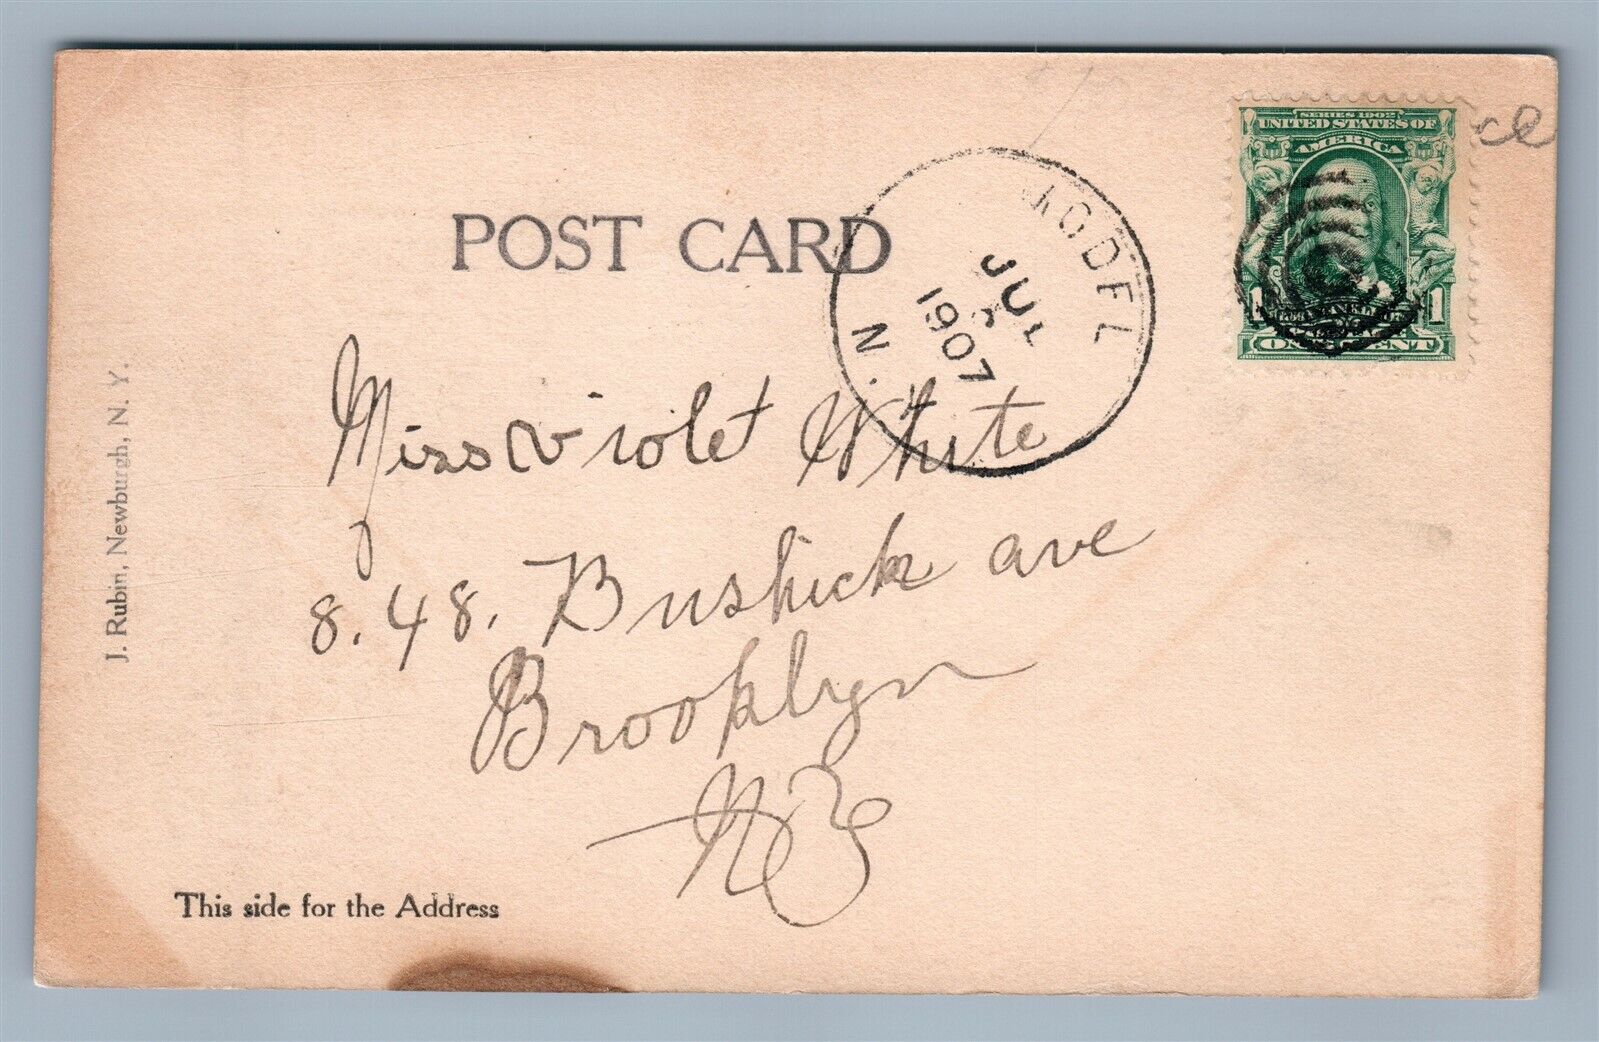 SERIES 1902
UNITED STATES OF
AMERICA
1 1
ONE CENT
POST CARD
ODEL
JUL
1907
N.
Miss Violet White
8.48. Bushick ave
Brooklyn
NY
J. Rubin, Newburgh, N. Y.
This side for the Address